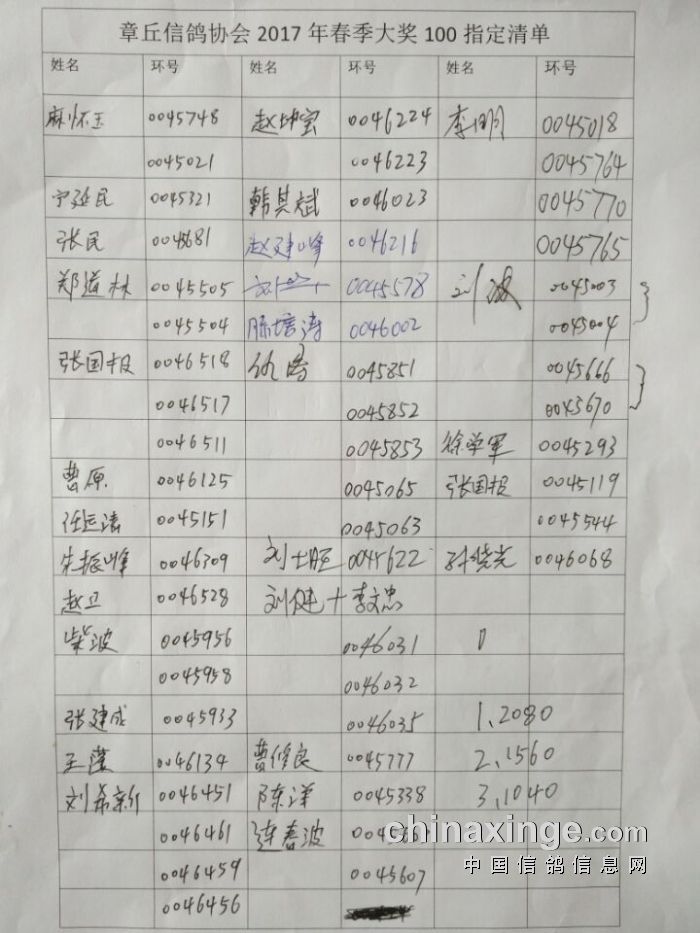 章丘信鸽协会2017年春季大奖100指定清单
姓名 环号 姓名 环号 姓名 环号
麻怀玉 0045748 赵坤宝 0046224 李明 0045018
0045021 0046223 0045764
宁延民 0045321 韩其斌 0046023 0045770
张民 0045681 赵建峰 0046216 0045765
郑道林 0045505 0045578 刘波 0045003
0045504 陈培涛 0046002 0045004
张国报 0046518 仇 0045851 0045666
0046517 0045852 0045670
0046511 0045853 徐学军 0045293
曹原 0046125 0045065 张国报 0045119
任运涛 0045151 0045063 0045544
朱振峰 0046309 刘士胜 0045622 孙晓光 0046068
赵卫 0046528 刘健+李文忠
柴波 0045956 0046031 0
0045958 0046032
张建成 0045933 0046035 1,2080
王莹 0046134 曹修良 0045777 2,1560
刘希新 0046451 陈洋 0045338 3,1040
0046461 连春波
0046459 0045607
0046456
chinaxinge.com
中国信鸽信息网